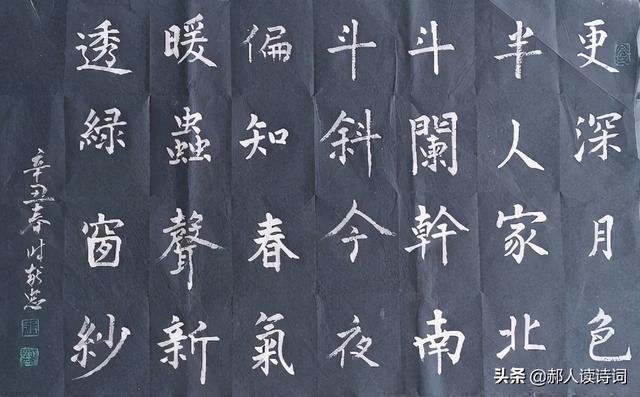 更深月色
半人家北
斗闌幹南
斗斜今夜
偏知春氣
暖蟲聲新
透緑窗紗
辛丑春
头条 @郝人读诗词